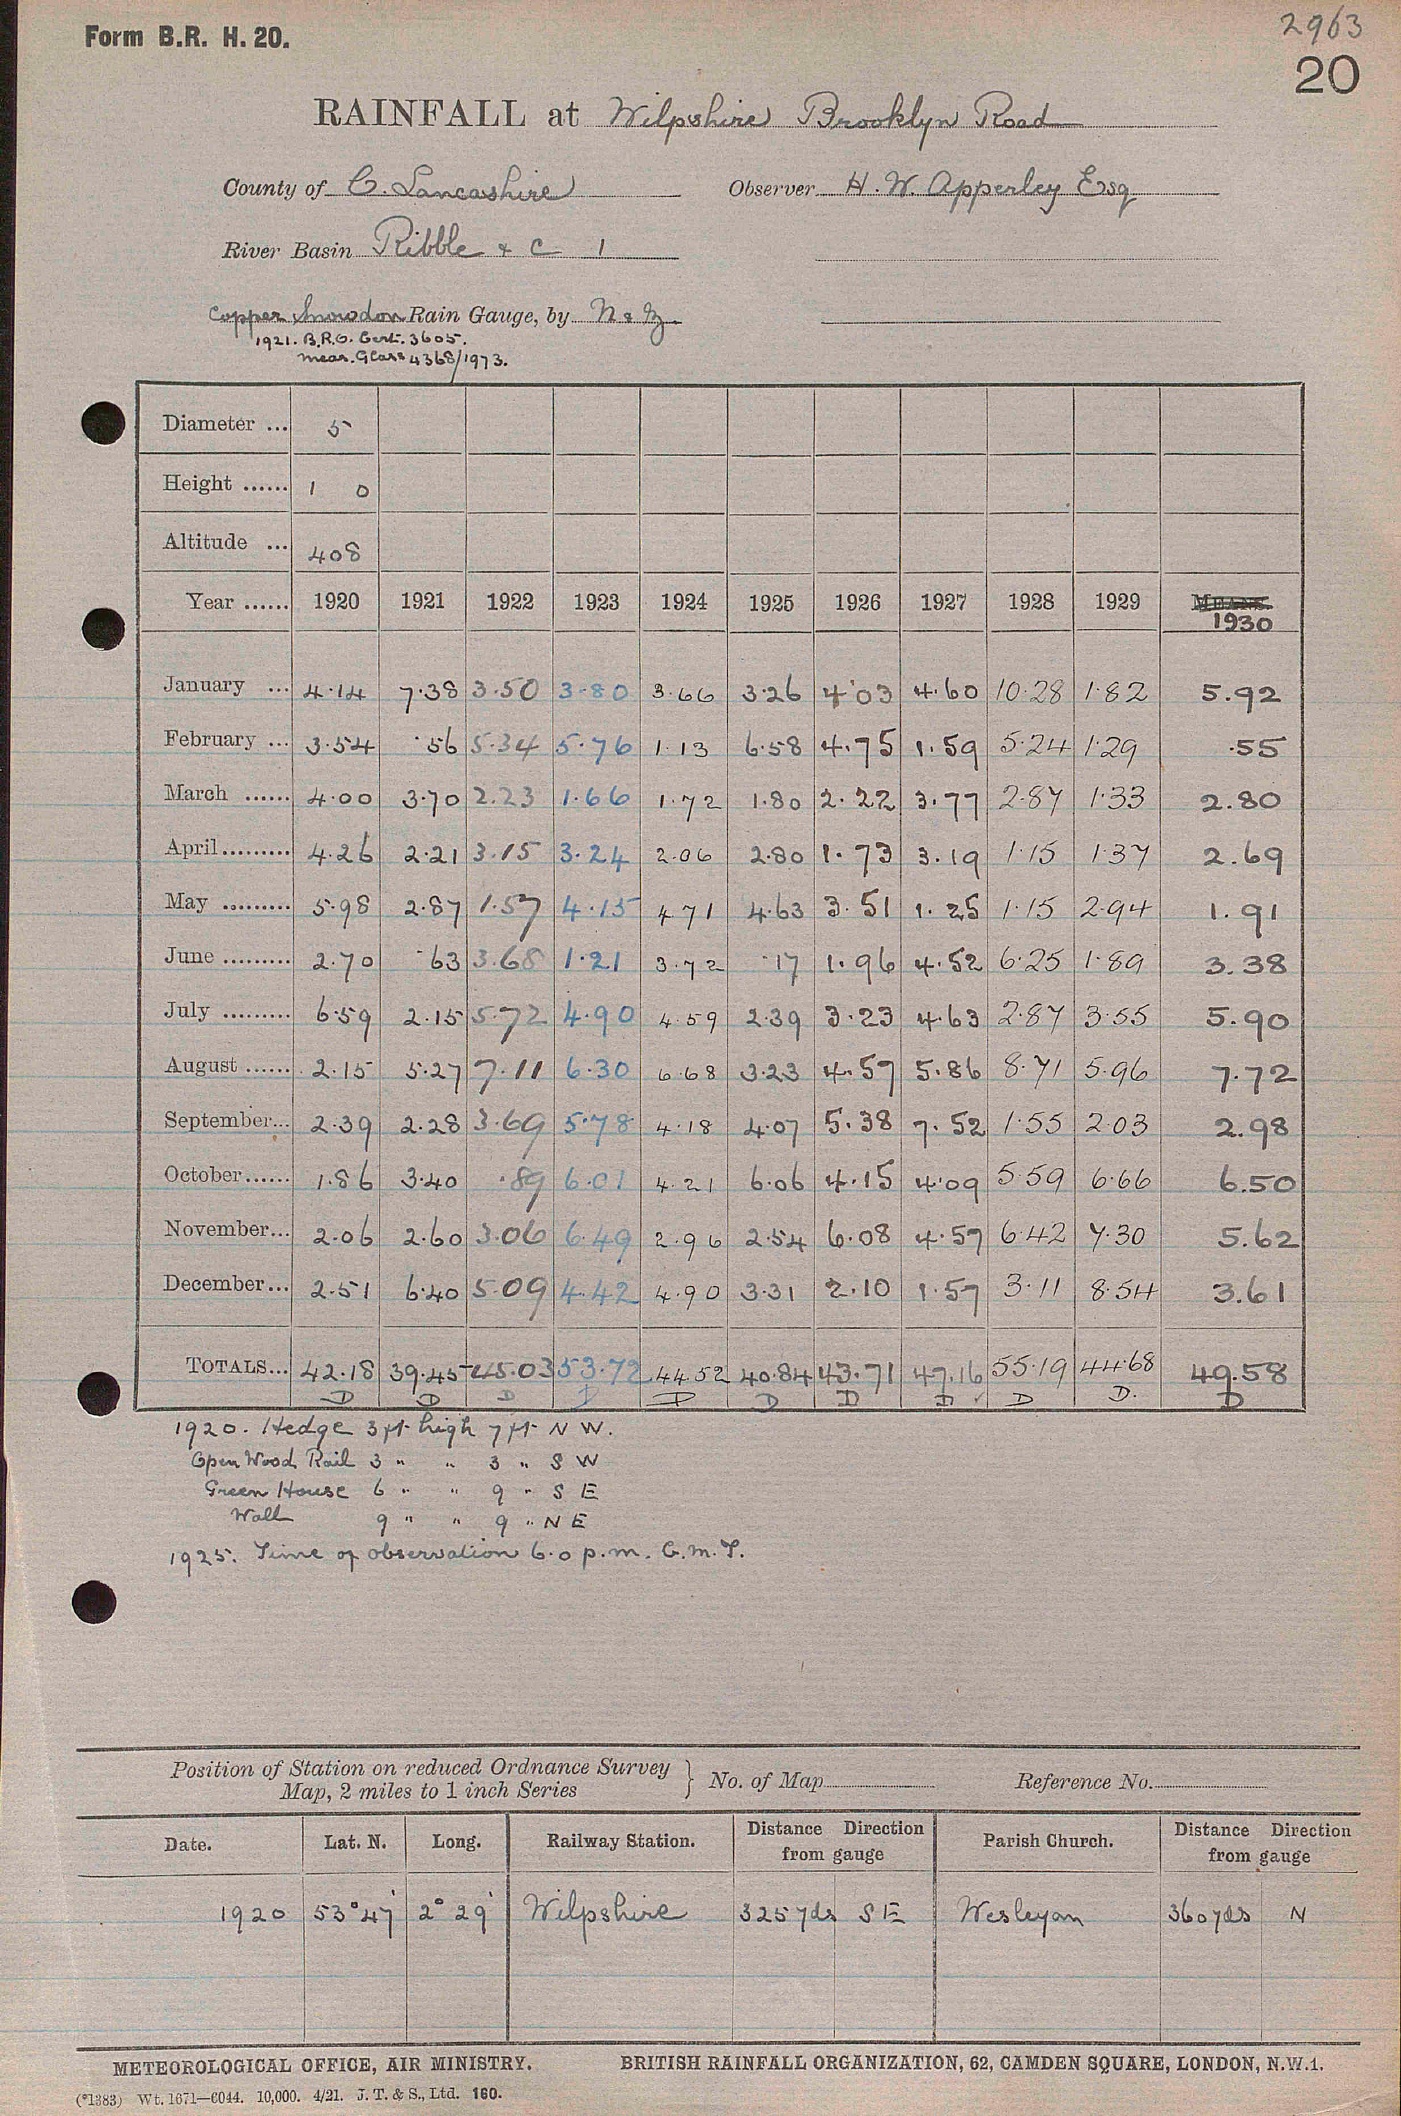 Form B.R. H. 20.
2963
20
RAINFALL at Wilpshire Brooklyn Road
County of C. Lancashire Observer H. W. Apperley Esq
River Basin Ribble & C 1
Copper Snowdon Rain Gauge, by N & Z
1921. B.R.O. Cert. 3605.
Meas. Glass 4368/1973.
Diameter ... 5
Height ...... 1 0
Altitude ... 408
Year ...... 1920 1921 1922 1923 1924 1925 1926 1927 1928 1929 MEANS.
1930
January ... 4.14 7.38 3.50 3.80 3.66 3.26 4.03 4.60 10.28 1.82 5.92
February ... 3.54 .56 5.34 5.76 1.13 6.58 4.75 1.59 5.24 1.29 .55
March ...... 4.00 3.70 2.23 1.66 1.72 1.80 2.22 3.77 2.87 1.33 2.80
April......... 4.26 2.21 3.15 3.24 2.06 2.80 1.73 3.19 1.15 1.37 2.69
May ......... 5.98 2.87 1.57 4.15 4.71 4.63 3.51 1.25 1.15 2.94 1.91
June ......... 2.70 .63 3.68 1.21 3.72 .17 1.96 4.52 6.25 1.89 3.38
July ......... 6.59 2.15 5.72 4.90 4.59 2.39 3.23 4.63 2.87 3.55 5.90
August ...... 2.15 5.27 7.11 6.30 6.68 3.23 4.57 5.86 8.71 5.96 7.72
September... 2.39 2.28 3.69 5.78 4.18 4.07 5.38 7.52 1.55 2.03 2.98
October...... 1.86 3.40 .89 6.01 4.21 6.06 4.15 4.09 5.59 6.66 6.50
November... 2.06 2.60 3.06 6.49 2.96 2.54 6.08 4.57 6.42 7.30 5.62
December... 2.51 6.40 5.09 4.42 4.90 3.31 2.10 1.57 3.11 8.54 3.61
TOTALS... 42.18 39.45 45.03 53.72 44.52 40.84 43.71 47.16 55.19 44.68 49.58
D D D D D D D D ✓ D D. D
1920. Hedge 3 ft high 7 ft N W.
Open Wood Rail 3 " " 3 " S W
Green House 6 " " 9 " S E
Wall 9 " " 9 " N E
1925. Time of observation 6.0 p.m. G.M.T.
Position of Station on reduced Ordnance Survey
Map, 2 miles to 1 inch Series } No. of Map Reference No.
Date. Lat. N. Long. Railway Station. Distance from gauge Direction Parish Church. Distance from gauge Direction
1920 53° 47' 2° 29' Wilpshire 325 yds S E Wesleyan 360 yds N
METEOROLOGICAL OFFICE, AIR MINISTRY. BRITISH RAINFALL ORGANIZATION, 62, CAMDEN SQUARE, LONDON, N.W.1.
(*1383) Wt. 1671—6044. 10,000. 4/21. J. T. & S., Ltd. 160.